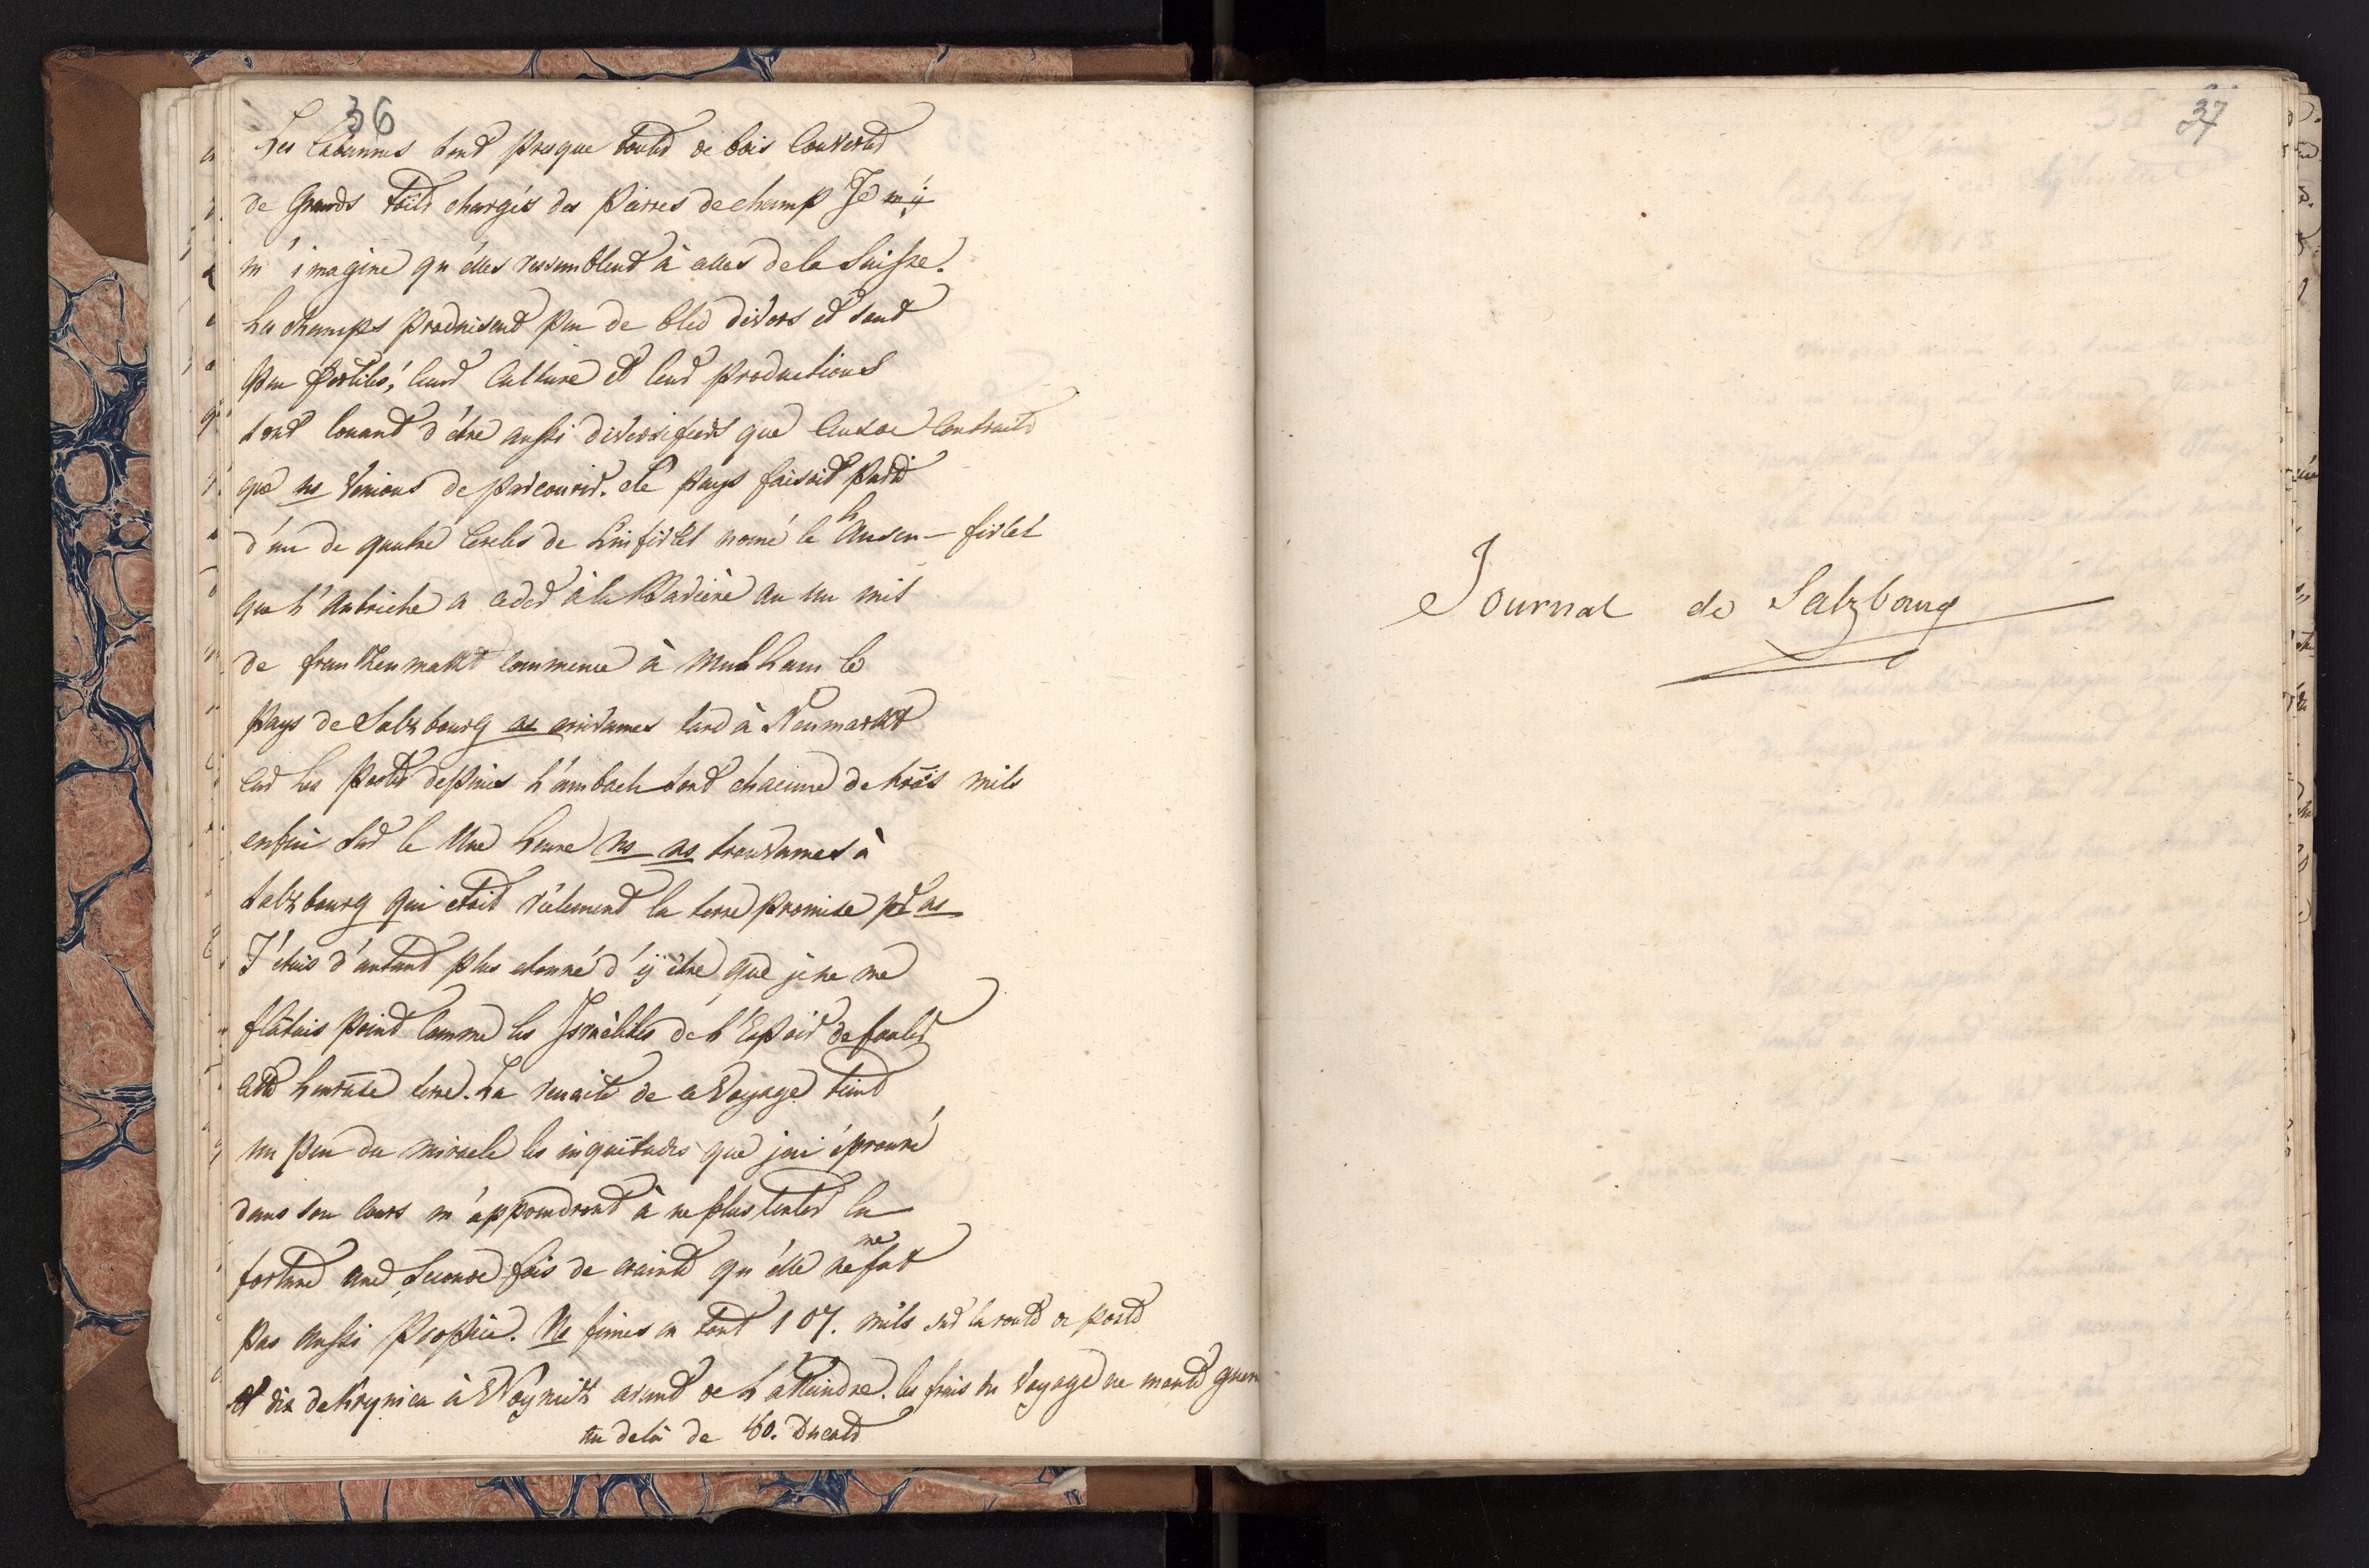 36
Les Cabannes sont presque toutes de bois Couvertes
de Grands toits chargés des pierres de champ Je m'y
m'imagine qu'elles ressemblent à celles de la Suisse.
Les champs produisent peu de bled divers et sont
peu fertiles, leur Culture et leur productions
sont d'être aussi que contraite
que ns venions de parcourir. Ce pays faisoit partie
d'un de quatre Cercles de nomé le Hausen-firtel
que l'Autriche a cedé à la Bavière au un mil
de frankenmarkt commence à le
pays de Salzbourg ns arrivames tard à Neumarkt
car les postes depuis Lambach sont chacune de trois mils
enfin sur le Une heure ns ns trouvames à
Salzbourg qui etoit réelement la terre promise pr ns
J'étois d'autant plus etonné d'ÿ être que je ne me
flâtois point comme les Israëlites de l'Espoir de fouler
cette heureuse terre. La reusite de ce Voyage tient
un peu du miracle les inquiètudes que j'ai éprouvé
dans son cours m'apprendront à ne plus tenter la
fortune une seconde fois de crainte qu'elle ne me fut
pas aussi propice. Ns fimes en tout 107. mils sur la route de poste
et dix de Krynica à Woynicz avant de l'atteindre. les frais du Voyage ne monte guere
au delà de 80. Ducats
37
Journal de Salzbourg